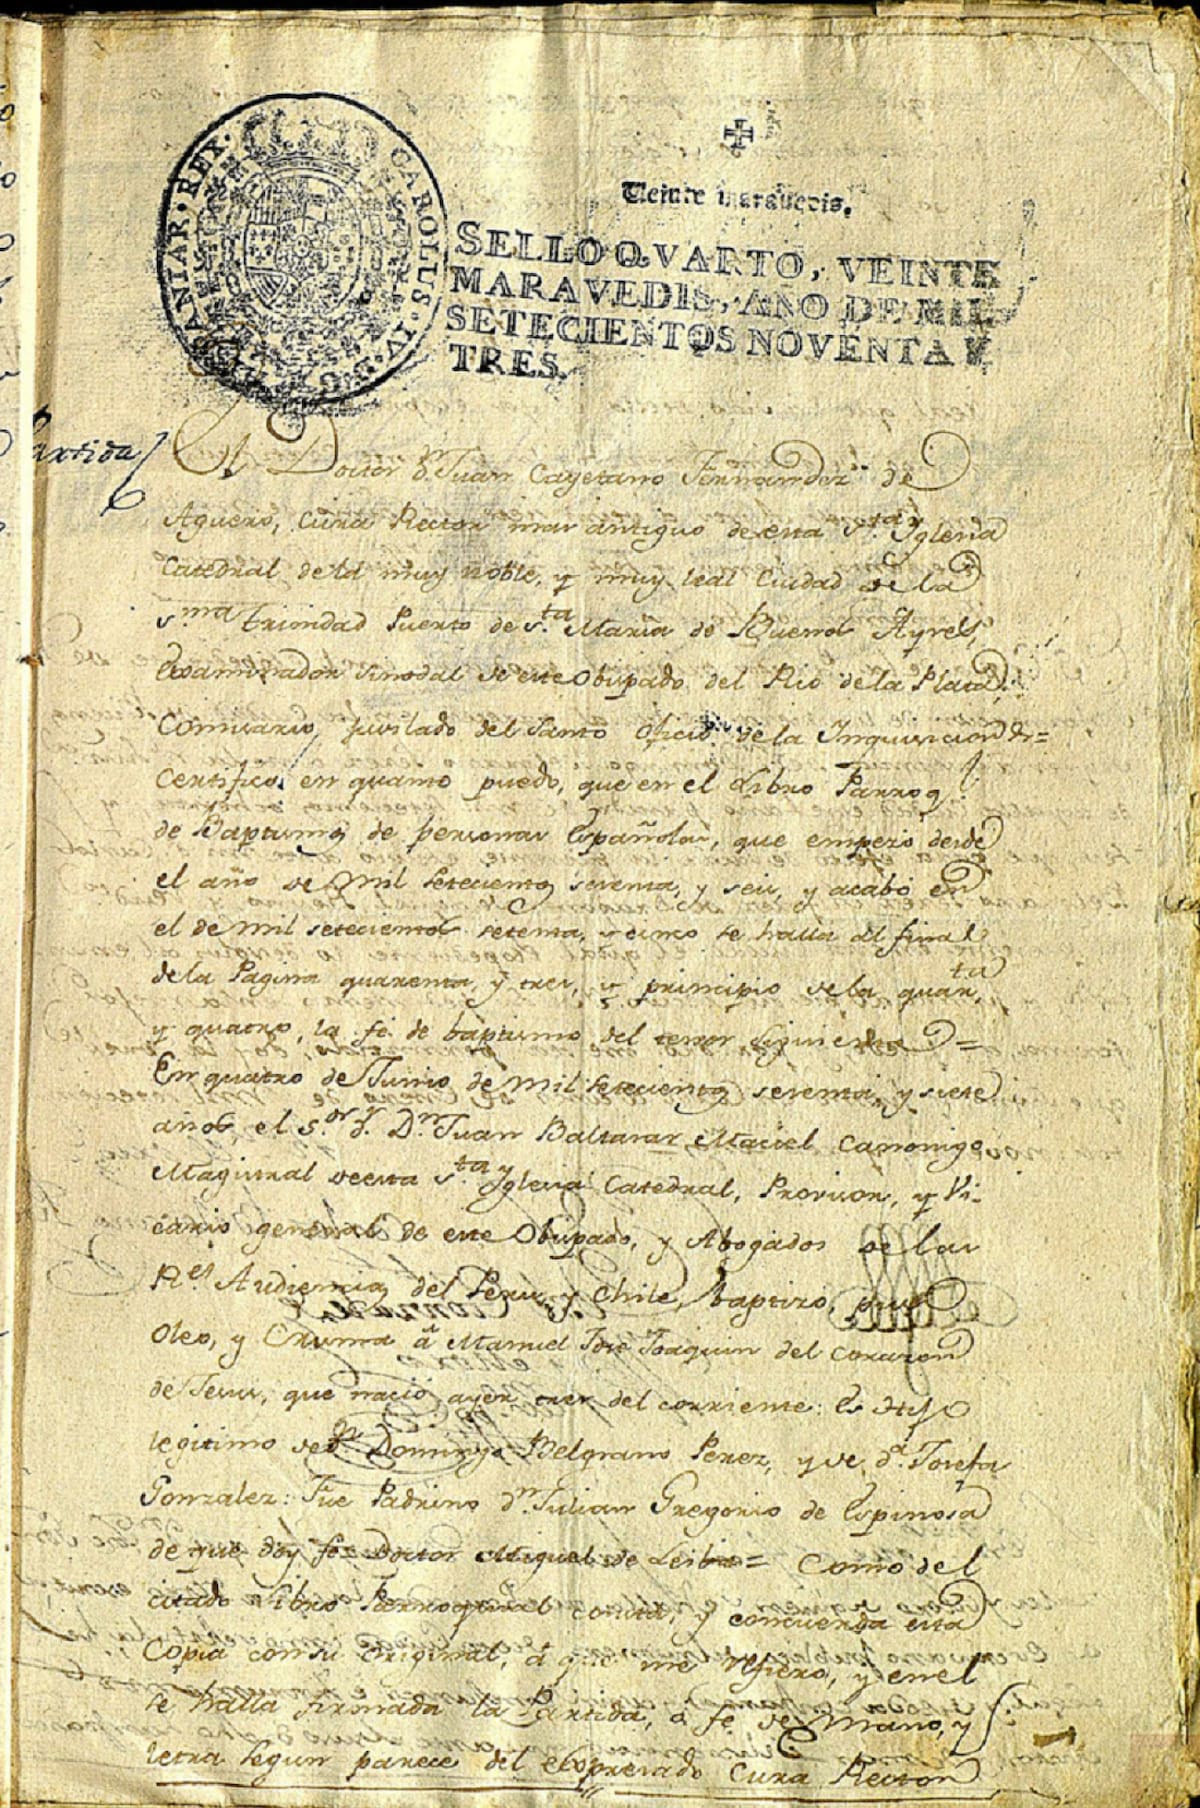 CAROLUS·IV·D·G· HISPANIAR·REX·
Veinte maravedis.
SELLO QVARTO, VEINTE
MARAVEDIS, AÑO DE MIL
SETECIENTOS NOVENTA Y
TRES.
Partida
El Doctor dn. Juan Cayetano Fernandez de
Aguero, Cura Rector mas antiguo de esta Sta. Yglesia
Catedral de la muy noble, y muy leal Ciudad de la
Sma. Trinidad Puerto de Sta. Maria de Buenos Ayres,
Examinador Sinodal de este Obispado del Rio de la Plata,
Comisario juvilado del Santo Oficio de la Inquisicion &=
Certifico en quanto puedo, que en el Libro Parroq.
de Baptismos de personas Españolas, que empezo desde
el año de mil setecientos setenta, y seis, y acabó en
el de mil setecientos setenta, y cinco se halla al final
de la Pagina quarenta, y tres, y principio de la quarta.
y quatro, la fé de baptismo del tenor siguiente =
En quatro de Junio de mil setecientos setenta, y siete
años el Sor. Dr. Dn. Juan Baltasar Maciel Canonigo
Magistral de esta Sta. Yglesia Catedral, Provisor, y Vi-
cario general de este Obispado, y Abogados de las
Rs. Audiencias del Peru, y Chile, baptizo, puso
Oleo, y Crisma á Manuel José Joaquin del corazon
de Jesus, que nació ayer tres del corriente: Es Hijo
legitimo de Dn. Domingo Belgrano Perez, y de da. Josefa
Gonzalez: Fue Padrino dn. Julian Gregorio de Espinosa
de que doy feé Doctor Miguel de Leiba= Como del
citado Libro Parroquial consta, y concuerda esta
Copia con su original, á que me refiero, y en el
se halla firmada la Partida, á fe de Mano, y
letra segun parece del expresado Cura Rector